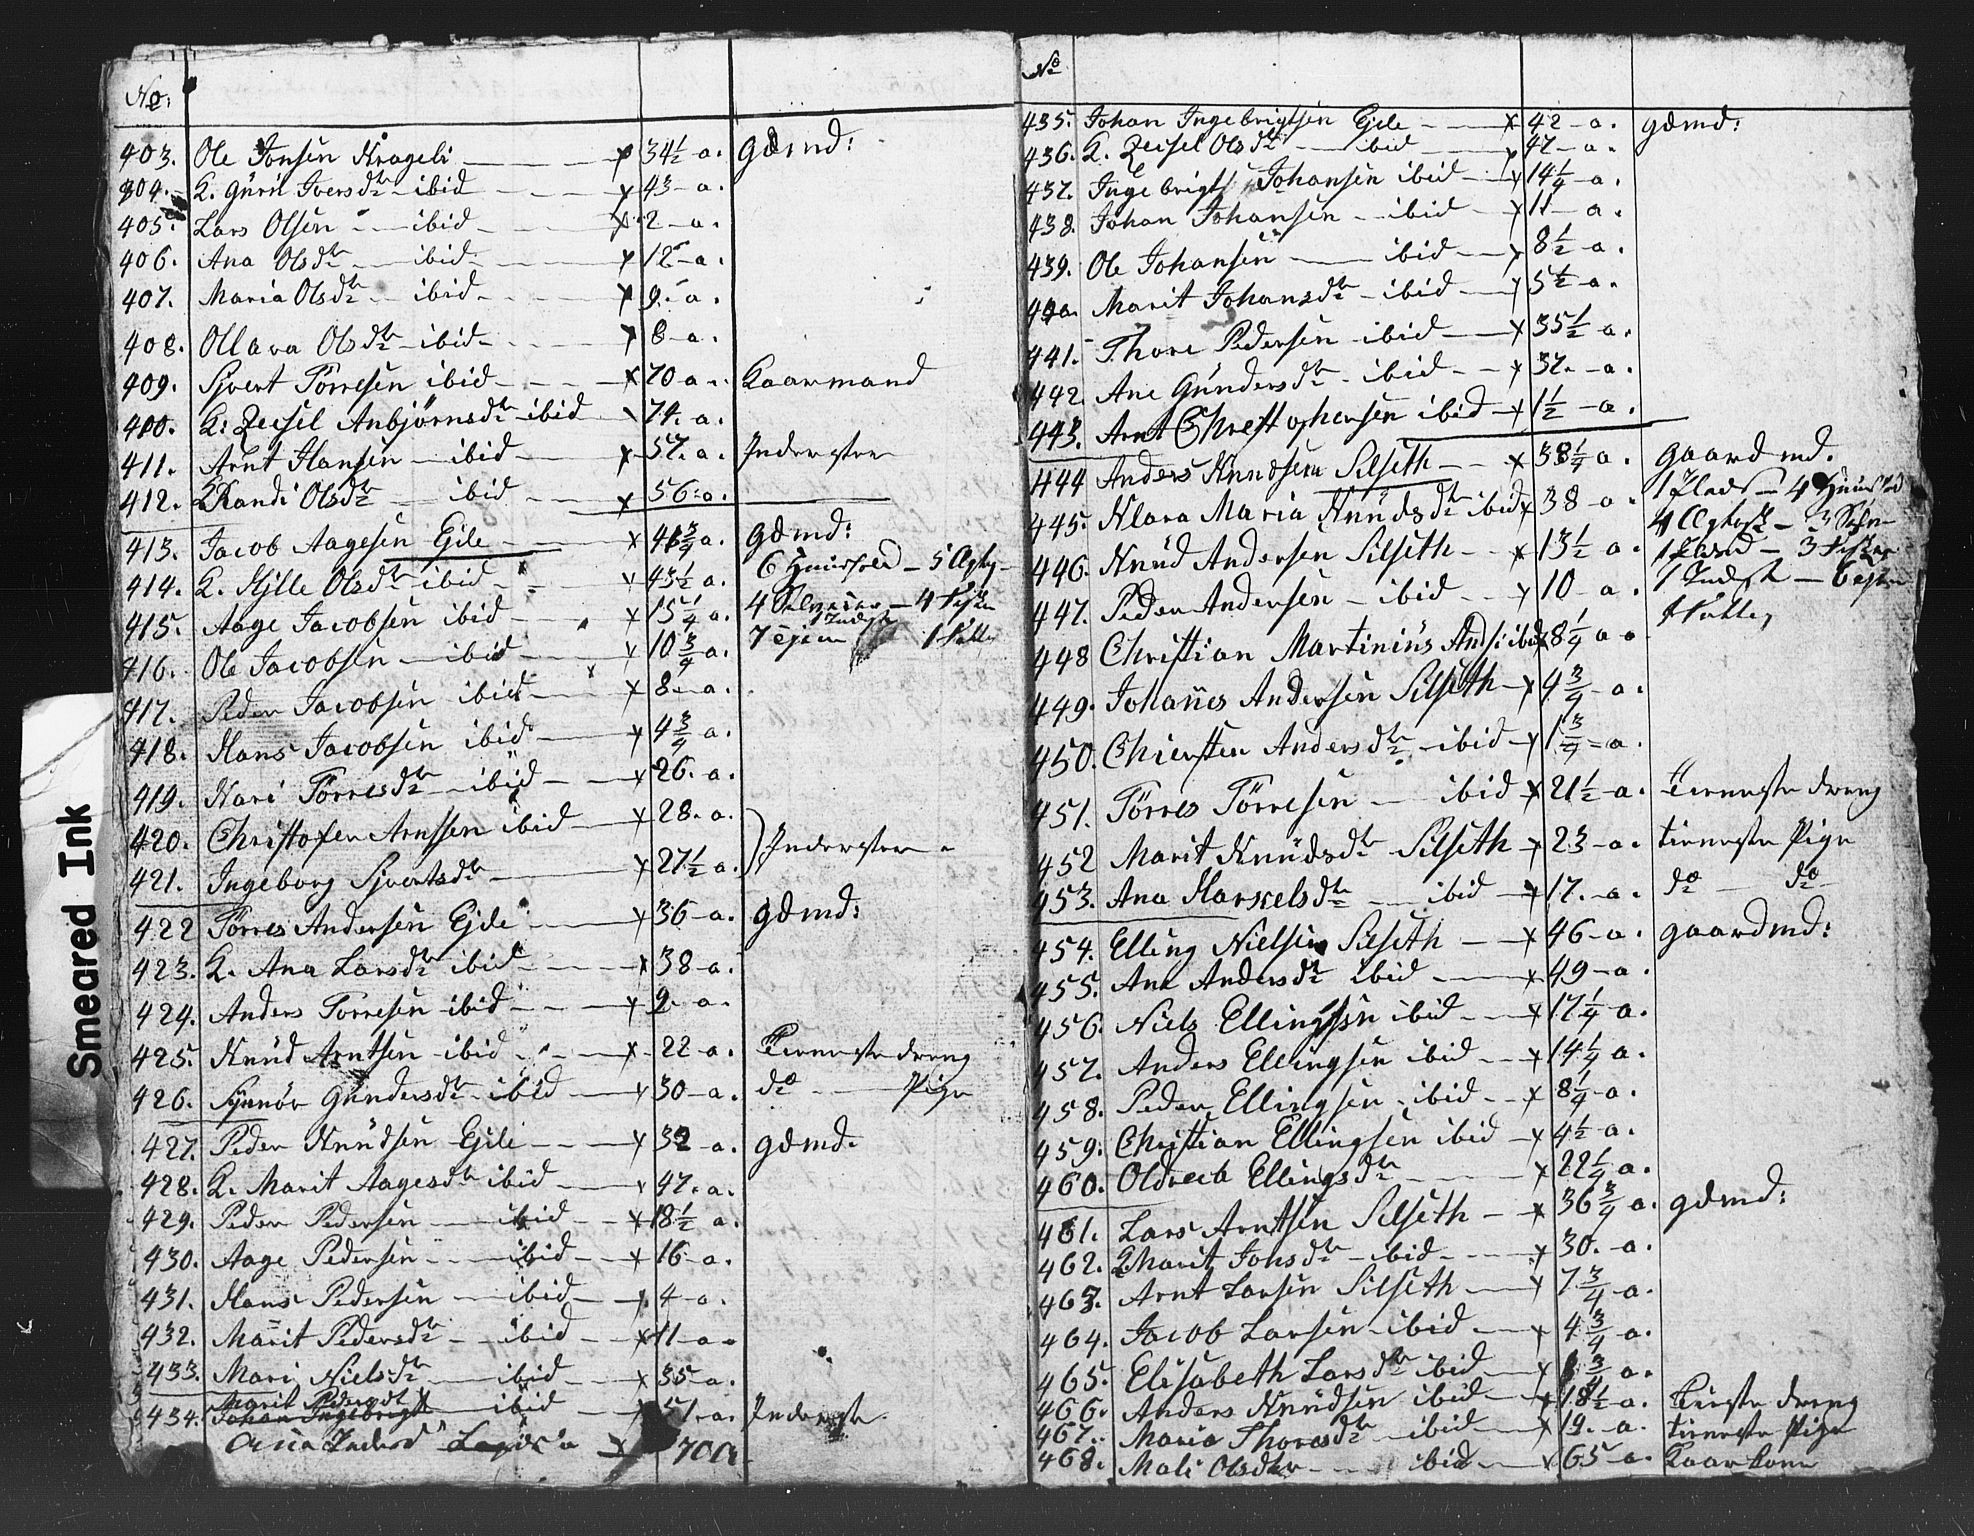 No:
403. Ole Jonsen Krageli x 34½ a. gdmd:
404. K. Guru Ivers dtr ibid x 43 a.
405. Lars Olsen ibid x 2 a.
406. Ana Ols dtr ibid x 12 a.
407. Maria Ols dtr ibid x 9. a.
408. Ollava Ols dtr ibid x 8 a.
409. Sjvert Törresen ibid x 70 a. Kaarmand
400. K: Zeisel Anbjörns dtr ibid 74. a.
411. Arnt Hansen ibid x 57. a. Inderster
412. K Randi Ols dtr ibid x 56. a.
413. Jacob Aagesen Ejde x 43¾ a. gdmd:
414. K. Hjlle Ols dtr ibid x 43½ a. 6 5
415. Aage Jacobsen ibid x 15¼ a. 4 4
416. Ole Jacobsen ibid x 10¾ a. 7 1
417. Peder Jacobsen ibid x 8 a.
418. Hans Jacobsen ibid x 4¾ a.
419. Kari Törres dtr ibid x 26. a.
420. Christofer Arntsen ibid x 28. a.
421. Ingeborg Sjverts dtr x 27½ a. Inderster
422 Törres Andersen Ejde x 36 a. gdmd:
423. K. Ana Lars dtr ibid x 38 a.
424. Anders Torresen ibid x 9. a.
425. Knud Arntsen ibid x 22 a. Tieneste dreng
426. Synnöv Gunders dtr ibid x 30 a. do Pige
427. Peder Knudsen Ejde x 32 a. gdmd.
428. K. Marit Aages dtr ibid x 47. a.
429. Peder Pedersen ibid x 18½ a.
430. Aage Pedersen ibid x 16 a.
431. Hans Pedersen ibid x 4 a.
432. Marit Peders dtr ibid x 11 a
433. Mari Niels dtr ibid x 35 a.
Marit
434. Johan Ingebrigt ibid 51 a. Inderste
x 70 a.
No
435. Johan Ingebrigtsen Ejde x 42 a. gdmd:
436. K. Zeisel Ols dtr ibid x 47 a.
437. Ingebrigt Johansen ibid x 14¼ a.
438. Johan Johansen ibid x 11 a.
439. Ole Johansen ibid x 8½ a.
440. Marit Johans dtr ibid x 5½ a.
441. Thore Pedersen ibid x 35½ a.
442. Ane Gunders dtr ibid x 37. a.
443. Arnt Christophersen ibid x 1½ a.
444 Anders Knudsen Silseth x 38¼ a. gaardmd.
445. Klara Maria Knuds dtr ibid x 38 a. 1 Plads 4
446. Knud Andersen Silseth x 13½ a. 4 3
447. Peder Andersen ibid x 10 a. 1 6
448 Christian Martinius Ands: ibid x 8¼ a
449. Johannes Andersen Silseth x 4¾ a.
450. Chiersten Anders dtr ibid x 1¾ a.
451. Törres Törresen ibid x 21½ a. Tieneste dreng
452 Marit Knuds dtr Silseth x 23 a. tieneste Pige
453. Ana Harkels dtr ibid x 17. a. do do
454. Elling Nielsen Silseth x 46 a. gaardmd:
455. Ane Anders dtr ibid x 49 a.
456. Niels Ellingsen ibid x 17¼ a.
457. Anders Ellingsen ibid x 14¼ a.
458. Peder Ellingsen ibid x 8¼ a.
459. Christian Ellingsen ibid x 4½ a.
460. Ellings dtr x 22¼ a.
461. Lars Arntsen Silseth x 36¾ a. gdmd:
462. K Marit Johs dtr ibid x 30. a.
463. Arnt Larsen Silseth x 7¾ a.
464. Jacob Larsen ibid x 4¾ a.
465. Elisabeth Lars dtr ibid x ¾ a.
466. Anders Knudsen ibid x 18½ a. Tieneste dreng
467. Maria Thores dtr ibid x 19. a. tieneste Pige
468. Mali Olsdtr ibid x 65 a. Kaarkone
Smeared Ink